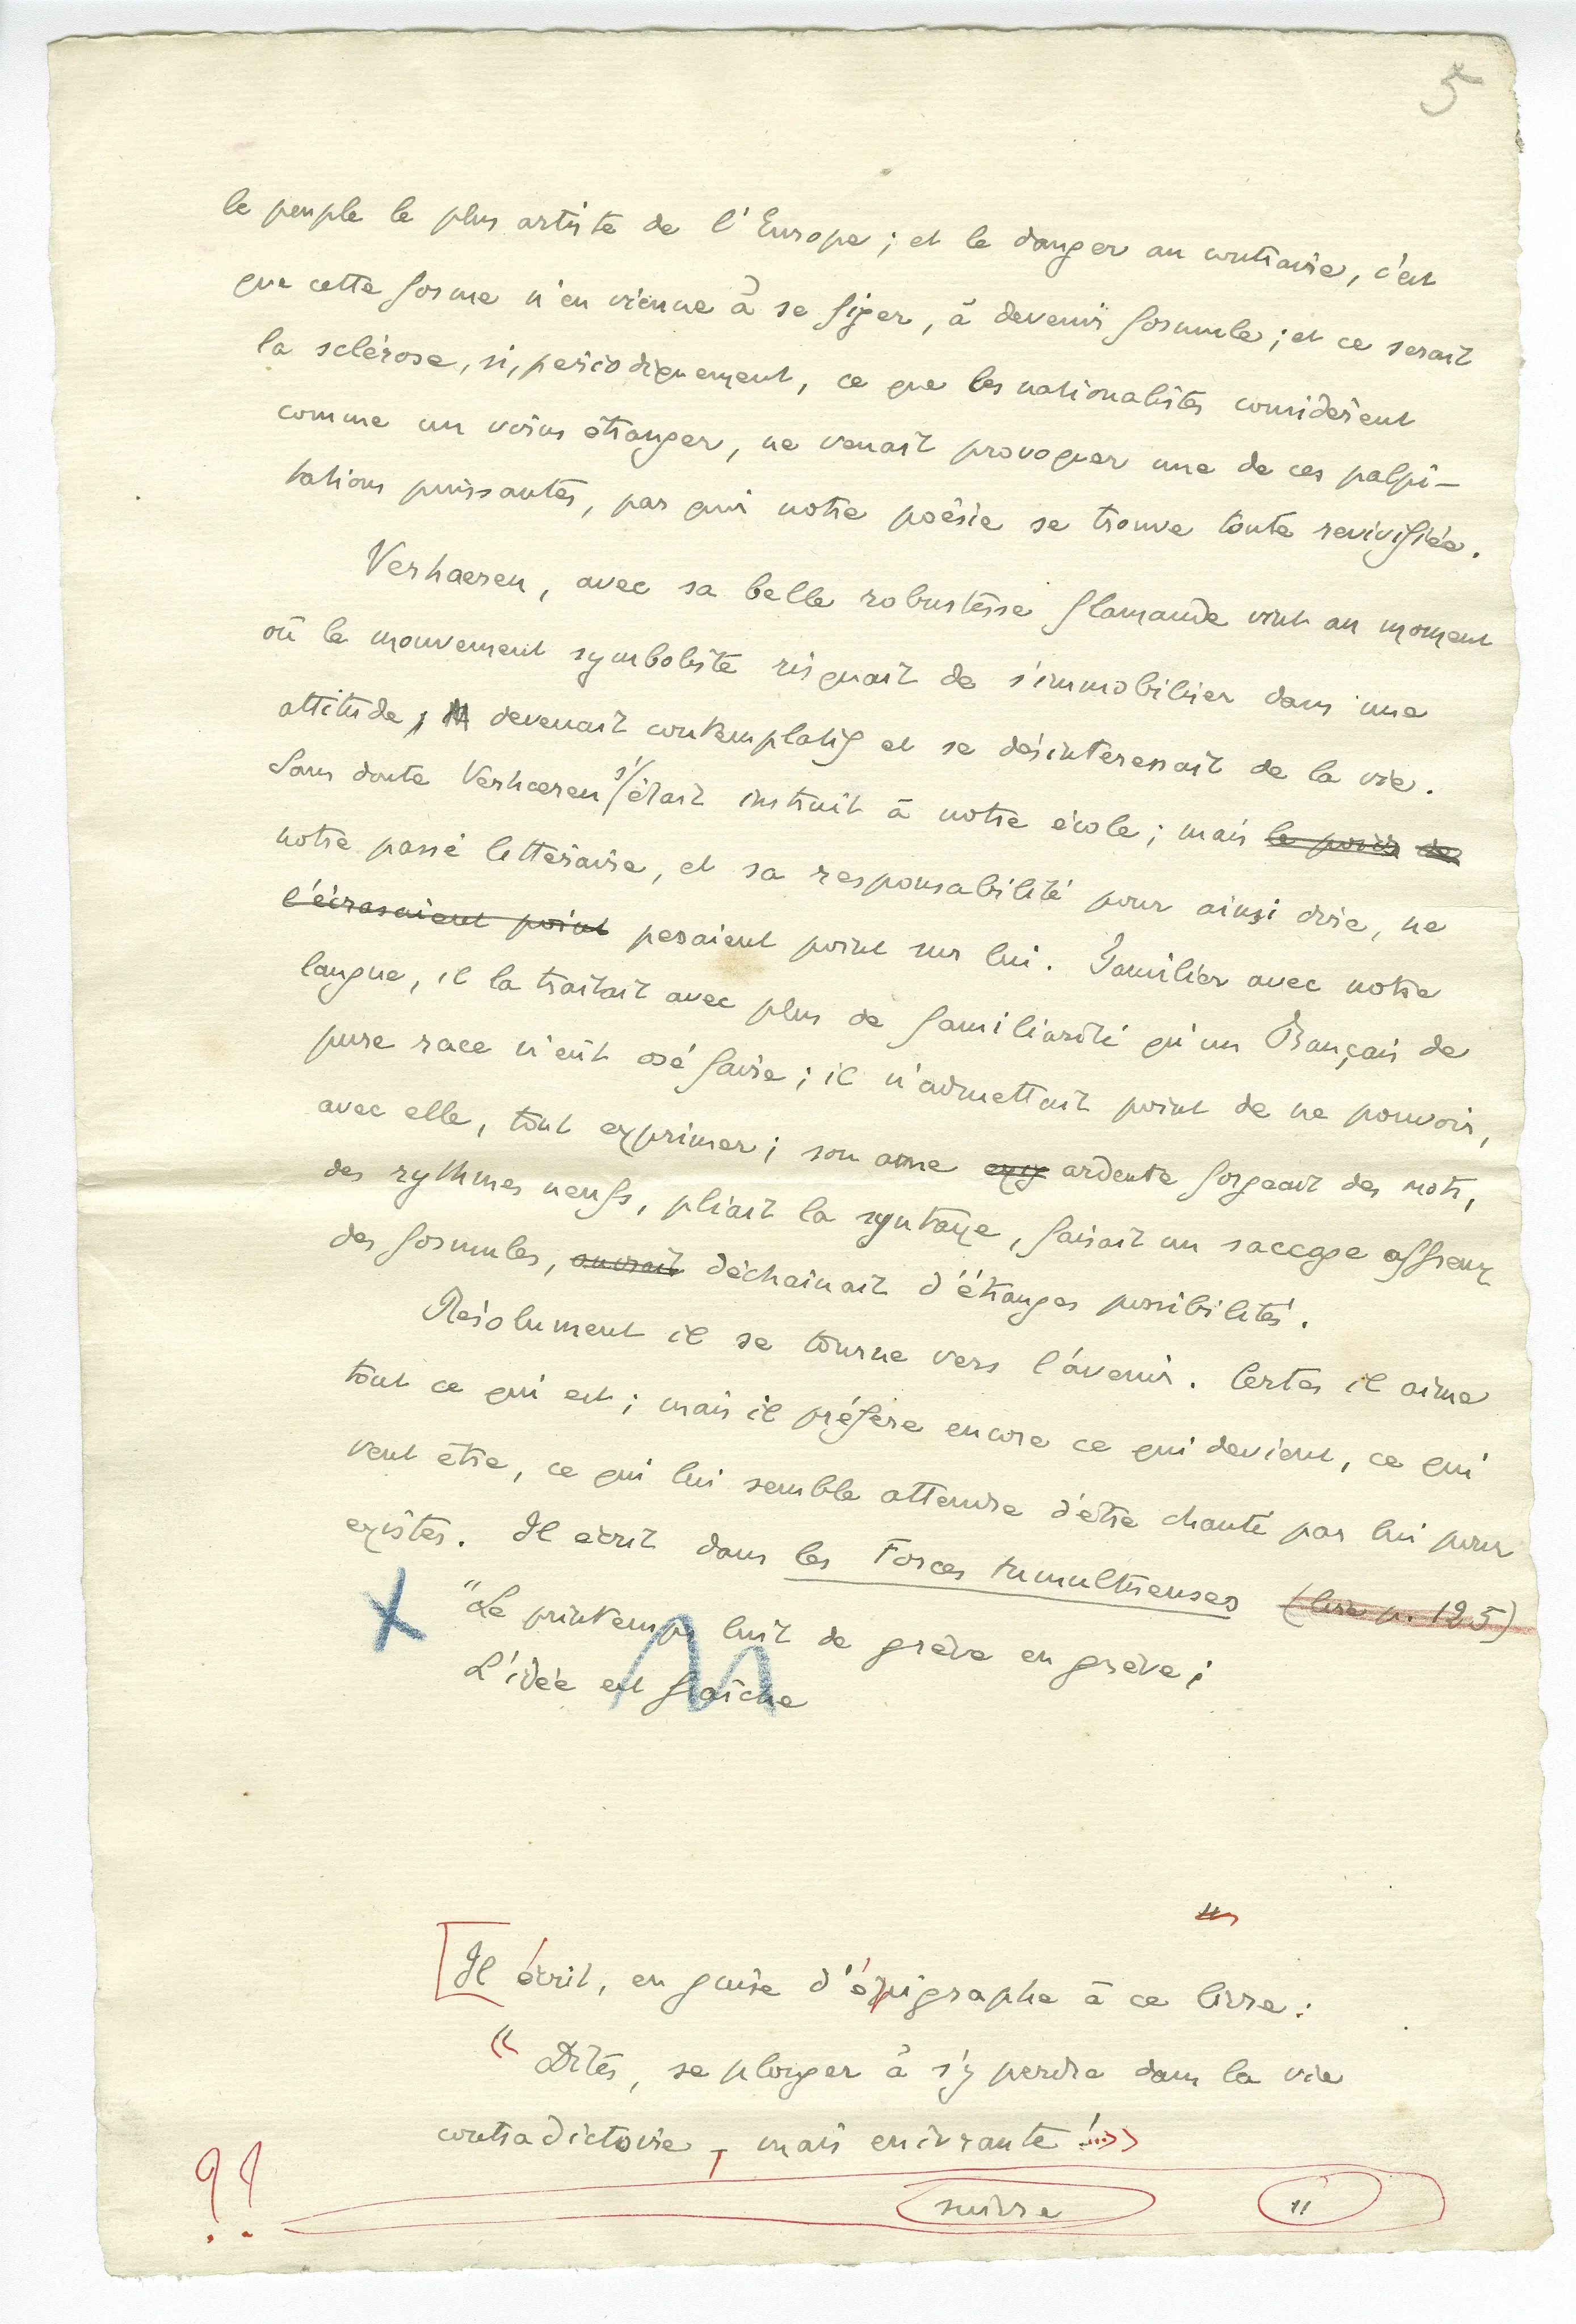 5
le peuple le plus artiste de l'Europe ; et le danger au contraire, c'est
que cette forme n'en vienne à se figer, à devenir formule ; et ce serait
la sclérose, si, périodiquement, ce que les nationalistes considèrent
comme un virus étranger, ne venait provoquer une de ces palpi-
tations puissantes, par qui notre poésie se trouve toute revivifiée.
Verhaeren, avec sa belle robustesse flamande vint au moment
où le mouvement symboliste risquait de s'immobiliser dans une
attitude, devenait contemplatif et se désintéressait de la vie.
Sans doute Verhaeren s'était instruit à notre école ; mais le poids de
notre passé littéraire, et sa responsabilité pour ainsi dire, ne
l'écrasaient point pesaient point sur lui. Familier avec notre
langue, il la traitait avec plus de familiarité qu'un Français de
pure race n'eût osé faire ; il n'admettait point de ne pouvoir,
avec elle, tout exprimer ; son ame exig ardente forgeait des mots,
des rythmes neufs, pliait la syntaxe, faisait un saccage affreux
des formules, ouvrait déchaînait d'étranges possibilités.
Résolument il se tourne vers l'avenir. Certes il aime
tout ce qui est ; mais il préfère encore ce qui devient, ce qui
veut être, ce qui lui semble attendre d'être chanté par lui pour
exister. Il écrit dans les Forces tumultueuses (lire p. 125)
X "Le printemps luit de grève en grève ;
L'idée est fraîche
"
Il écrit, en guise d'épigraphe à ce livre :
« Dites, se plonger à s'y perdre dans la vie
contradictoire, mais enivrante !...»
?? suivre "